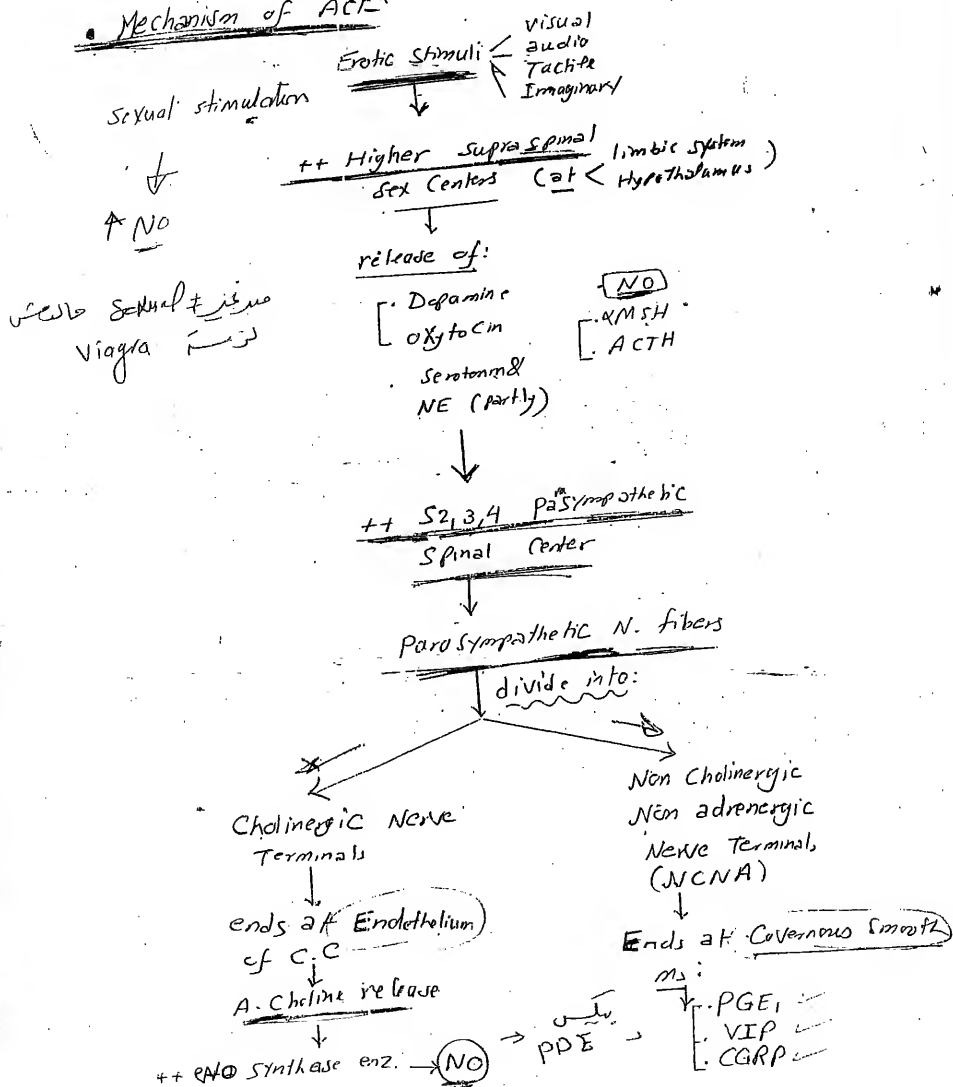 • Mechanism of
Erotic Stimuli
visual
audio
Tactile
Imaginary
Sexual stimulation
↑ NO
++ Higher supra spinal
Sex Centers (at < limbic system
Hypothalamus )
release of:
. Dopamine
oxytocin
. Serotonin &
NE (partly)
NO
. αMSH
. ACTH
من غير sexual
Viagra
++ S2,3,4 parasympathetic
Spinal Center
Parasympathetic N. fibers
divide into:
Cholinergic Nerve
Terminals
ends at Endothelium
of C.C
A. Choline release
++ eNO synthase enz. → NO → PDE
Non Cholinergic
Non adrenergic
Nerve Terminals
(NCNA)
Ends at Covernous smooth
ms:
. PGE1
. VIP
. CGRP